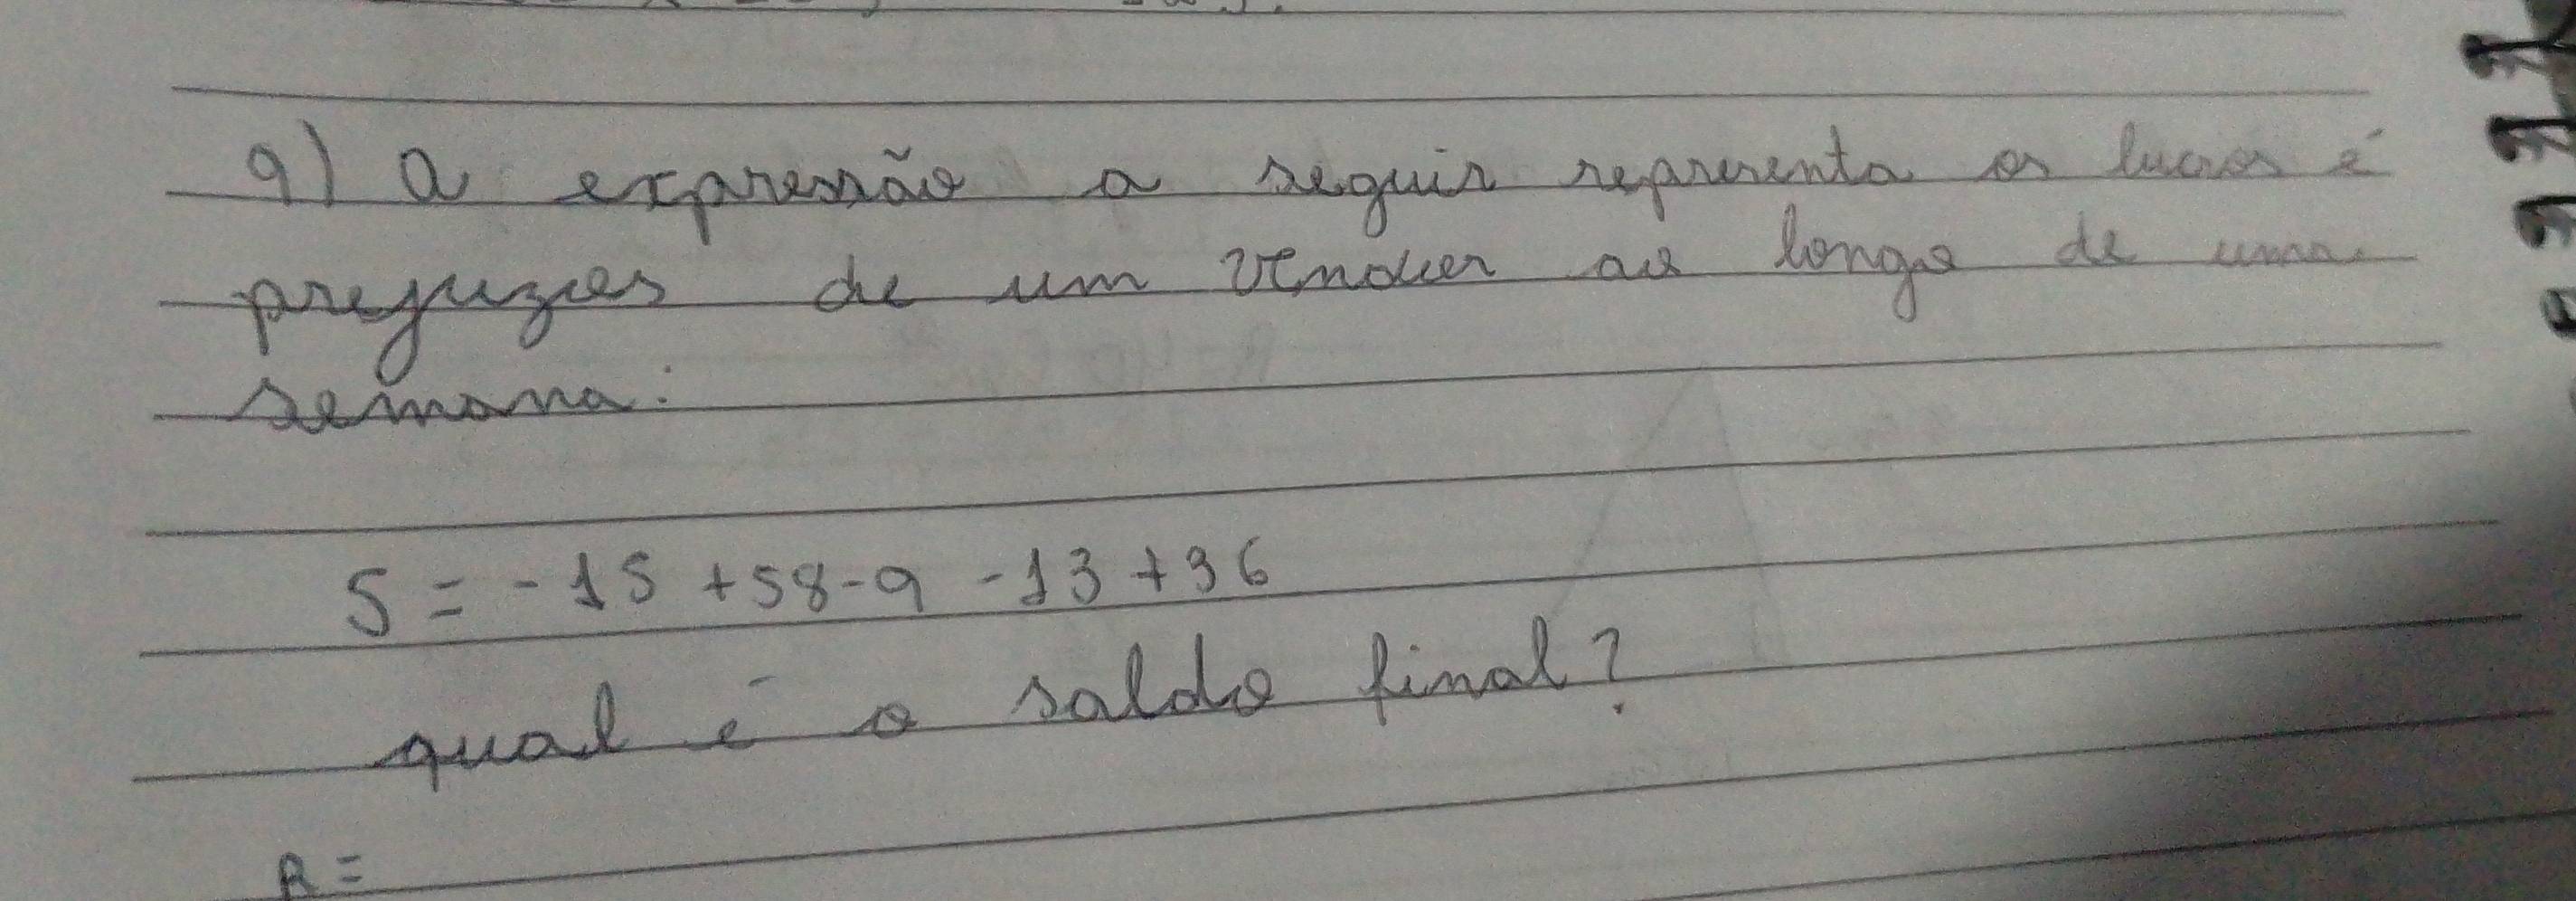 9) A expressão a seguir representa os lucros é
prejuzios de um vender ao longo de uma
semana:
S = -15 +58-9 -13 +36
qual é o saldo final?
R =